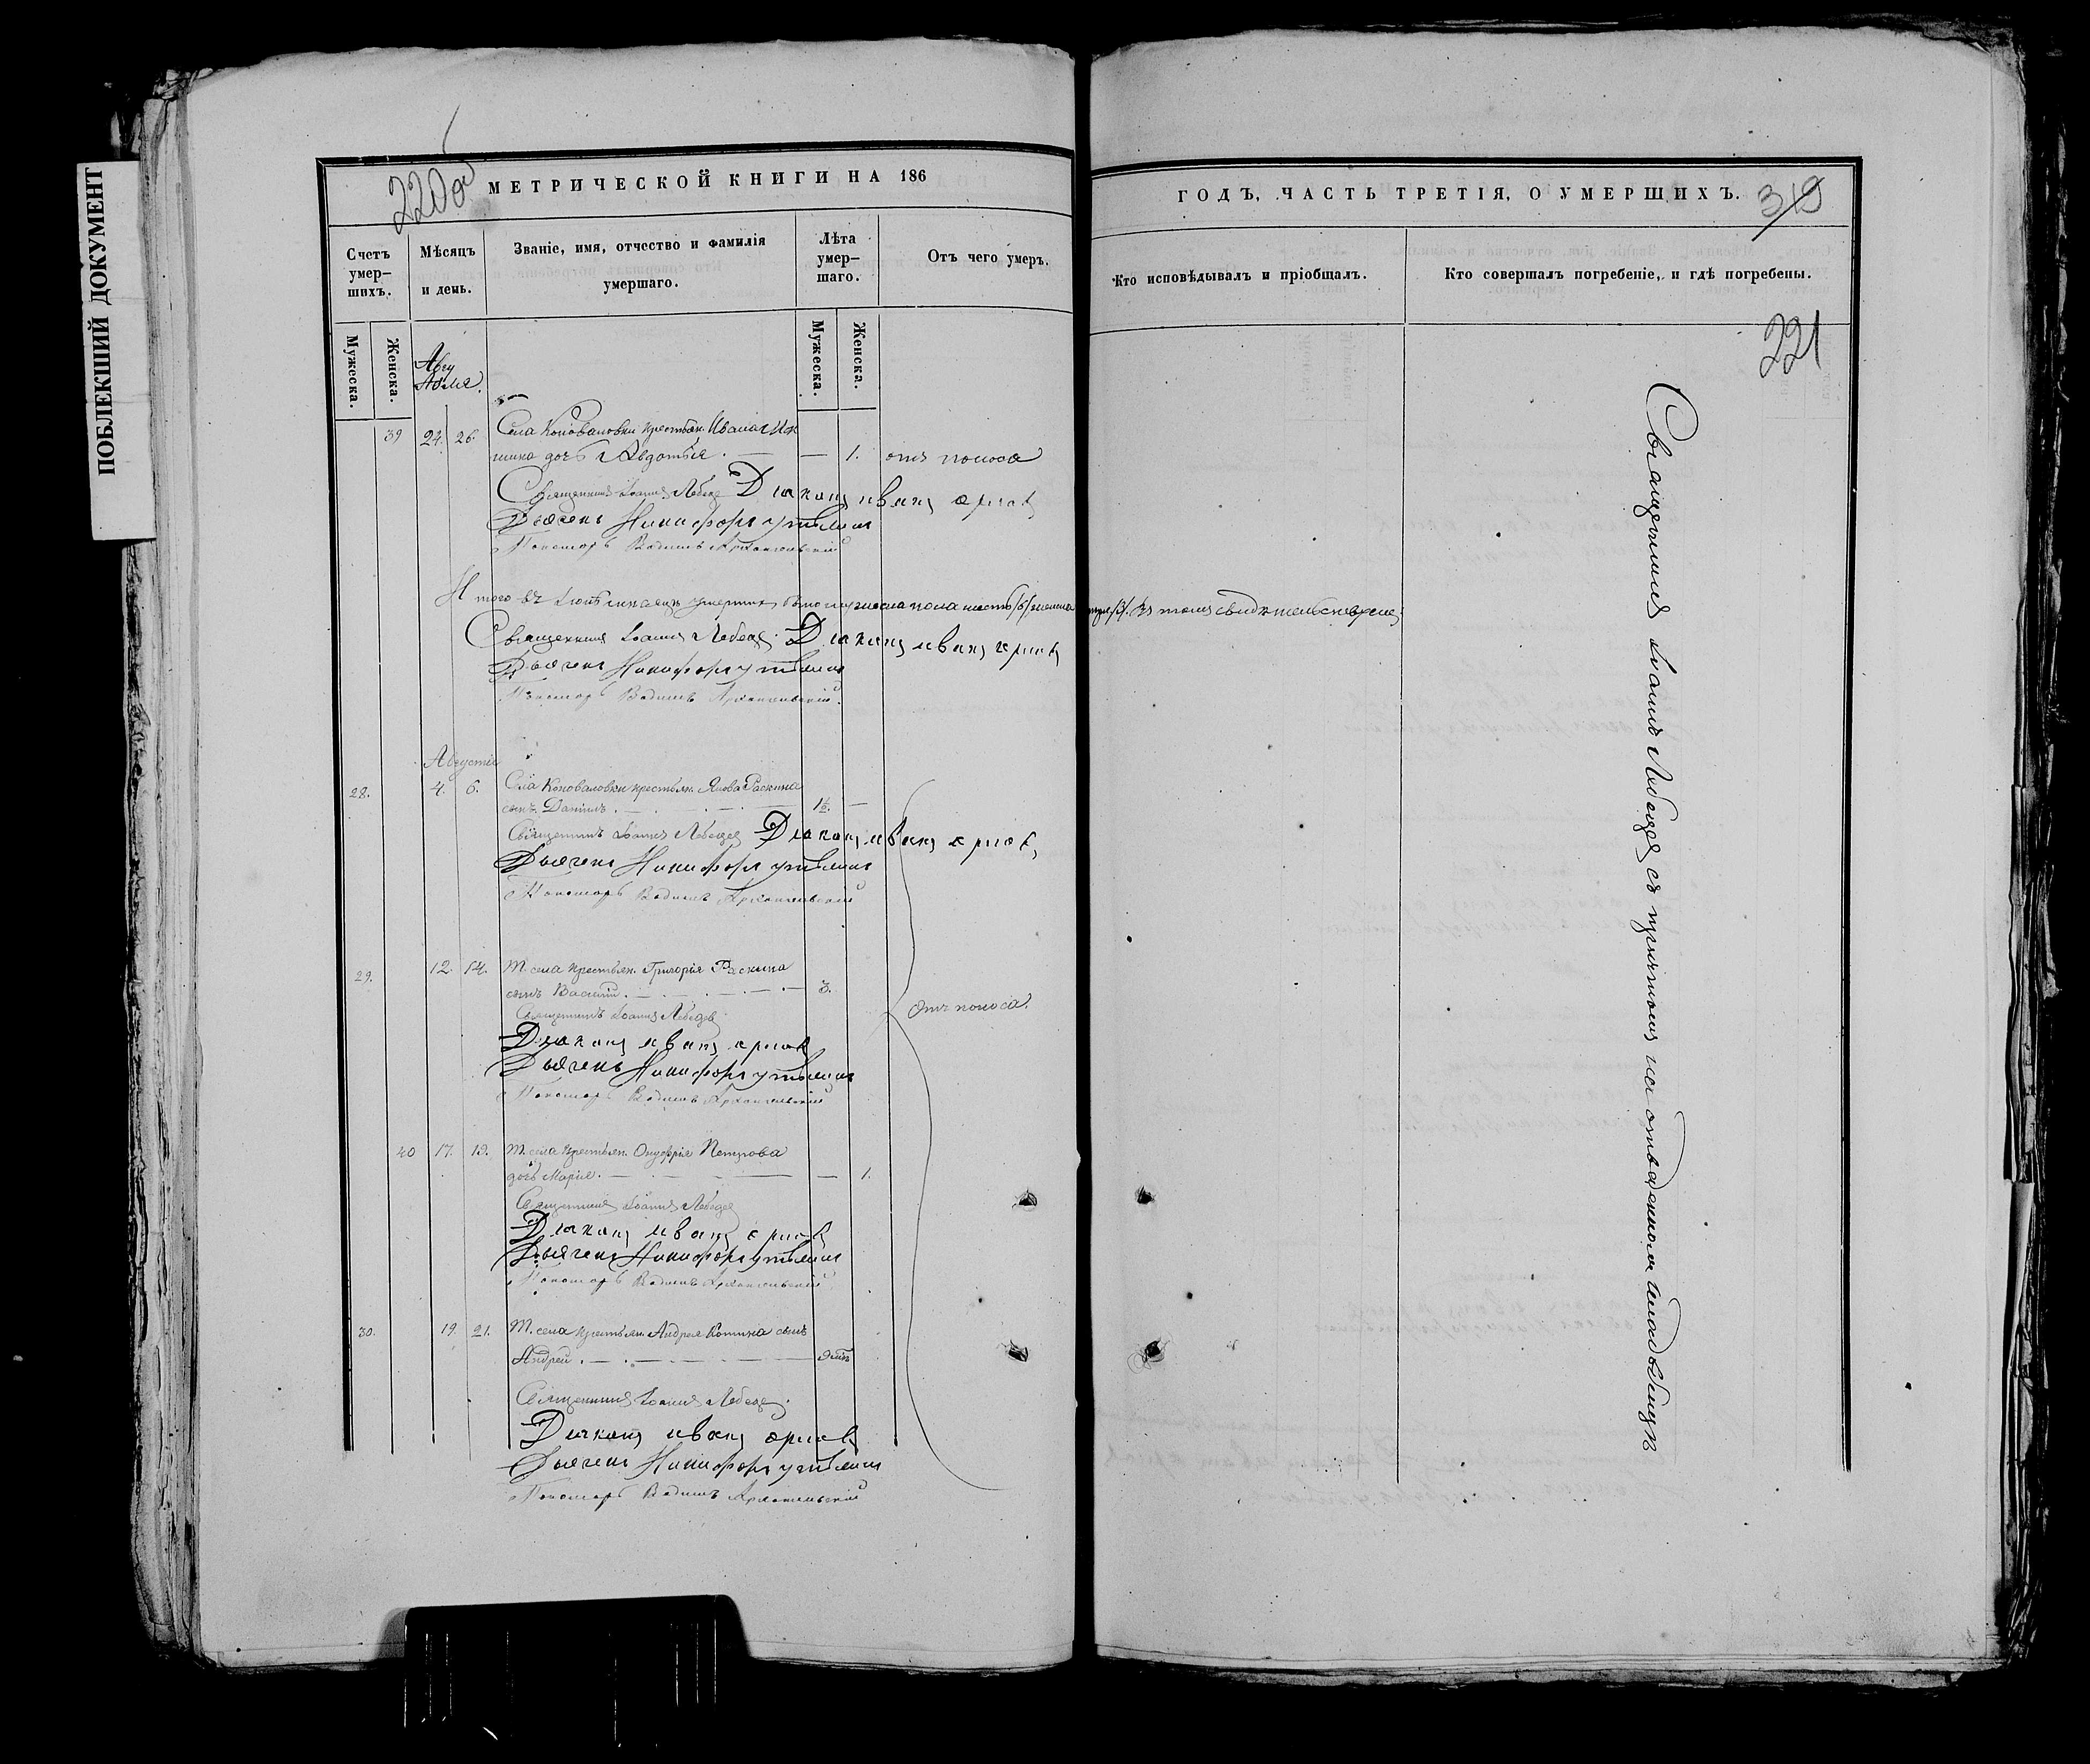 ПОБЛЕКШИЙ ДОКУМЕНТ
220 об
МЕТРИЧЕСКОЙ КНИГИ НА 186
Счетъ умер–шихъ.
Мѣсяцъ и день.
Званіе, имя, отчество и фамилія умершаго.
Лѣта умер–шаго.
Отъ чего умеръ.
Мужеска.
Женска.
Мужеска.
Женска.
39 24. 26. Села Коноваловки крестьян. Ивана
дочь Авдотья. — — 1. отъ поноса
Священникъ Іоаннъ Лебедев Діаконъ Иванъ
Дьячекъ Никифоръ
Пономарь Вадимъ Архангельскій
Итого въ Іюлѣ мѣсяцѣ умершихъ мужеска пола шесть /6/ женска три /3/. Въ томъ свидѣтельствуемъ
Священникъ Іоаннъ Лебедев. Діаконъ Иванъ
Дьячекъ Никифоръ
Пономарь Вадимъ Архангельскій.
Августъ
28. 4. 6. Села Коноваловки крестьян. Якова Раскина
сынъ Даніилъ. — 1½. —
Священникъ Іоаннъ Лебедев Діаконъ Иванъ
Дьячекъ Никифоръ
Пономарь Вадимъ Архангельскій
29. 12. 14. Т. села крестьян. Григорія Раскина
сынъ Василій. — 3.
Отъ поноса.
Священникъ Іоаннъ Лебедев
Діаконъ Иванъ
Дьячекъ Никифоръ
Пономарь Вадимъ Архангельскій
40 17. 19. Т. села крестьян. Онуфрія Петрова
дочь Марія. — — 1.
Священникъ Іоаннъ Лебедев
Діаконъ Иванъ
Дьячекъ Никифоръ
Пономарь Вадимъ Архангельскій
30. 19. 21. Т. села крестьян. Андрея Котина сынъ
Андрей. —
Священникъ Іоаннъ Лебедев.
Діаконъ Иванъ
Дьячекъ Никифоръ
Пономарь Вадимъ Архангельскій
ГОДЪ, ЧАСТЬ ТРЕТІЯ, О УМЕРШИХЪ.
319
Кто исповѣдывалъ и пріобщалъ.
Кто совершалъ погребеніе, и гдѣ погребены.
221
Священникъ Іоаннъ Лебедев съ причтомъ на отведенномъ кладбищѣ